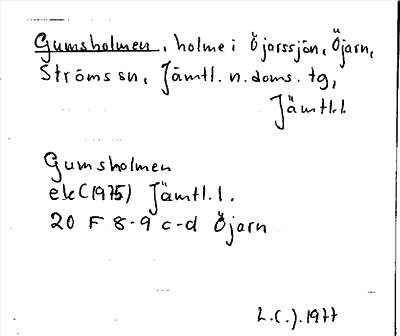 Gumsholmen, holme i Öjarssjön, Öjarn,
Ströms sn, Jämtl. n. doms. tg,
Jämtl.l
Gumsholmen
ek (1975) Jämtl. l.
20 F 8-9 c-d Öjarn
L.(.).1977